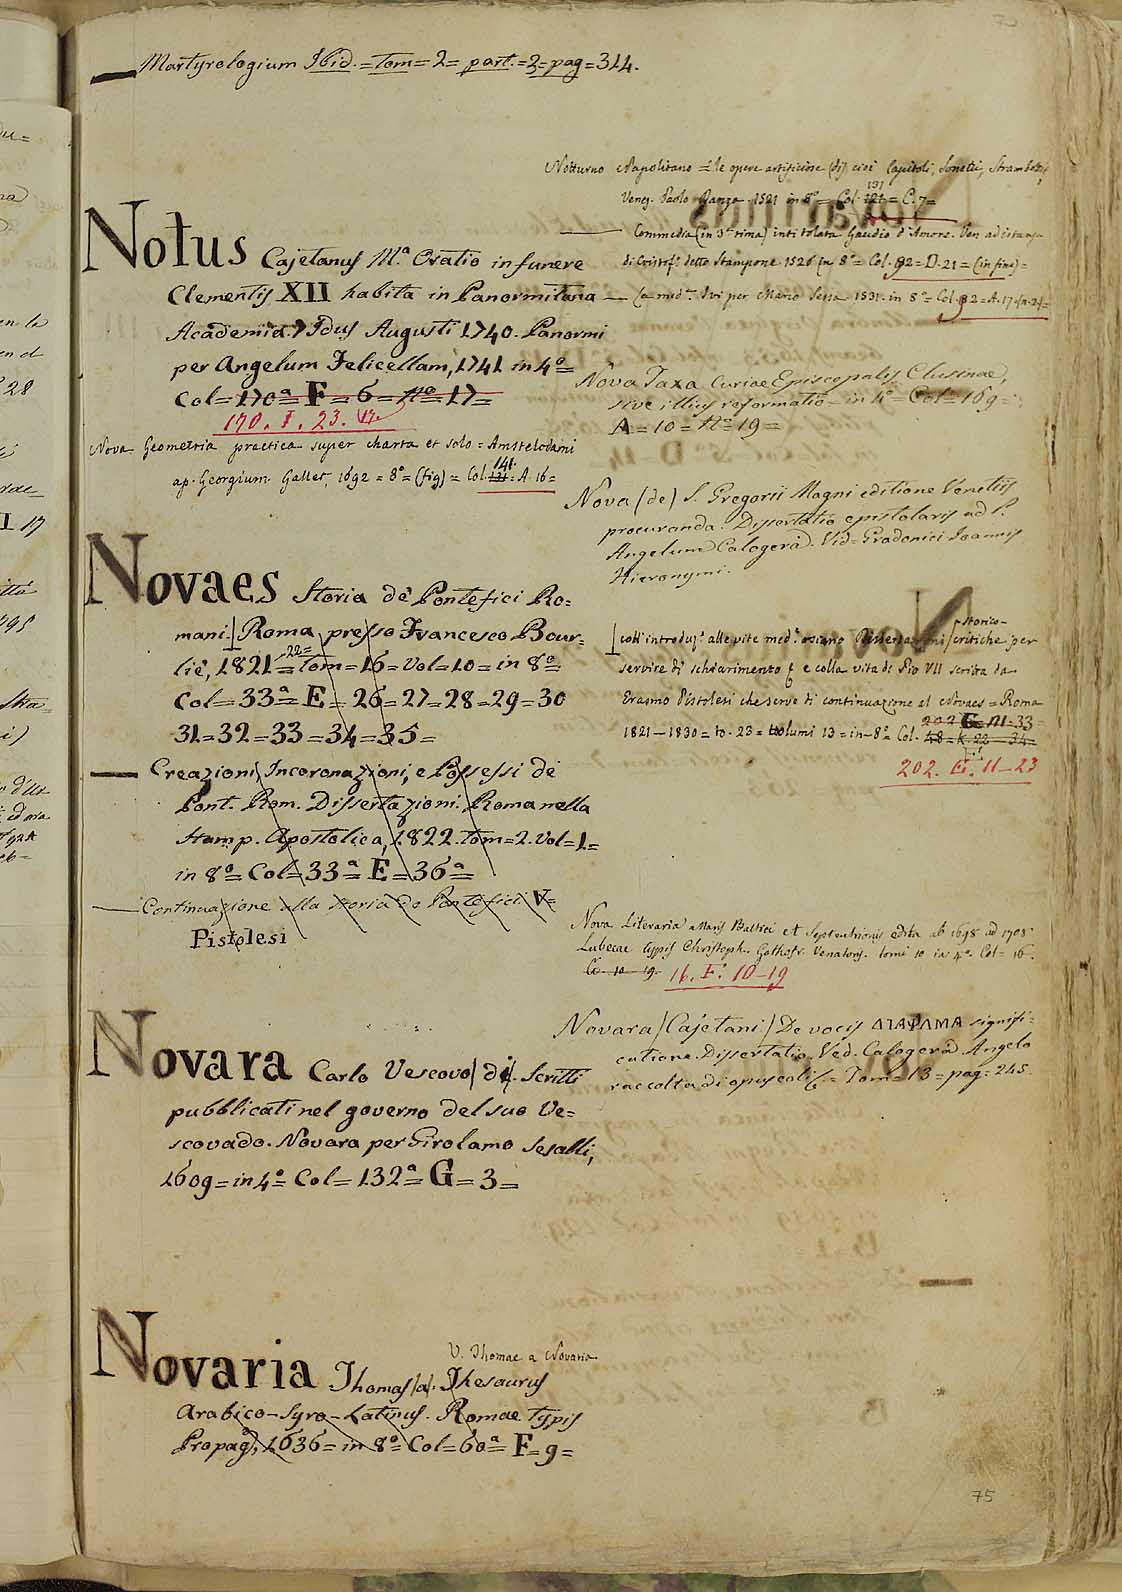 Martyrologium Ibid. = tom = 2 = part. = 2 = pag = 314.
Notus Cajetanus M.ª Oratio in funere
Clementis XII habita in Panormitana
Academia 7 Idus Augusti 1740. Panormi
per Angelum Felicellam, 1741 in 4º =
Col = 170ª = F = 6 = Nº 17 =
170. I. 23. 17.
Nova Geometria practica super charta et solo = Amstelodami
ap. Georgium Gallet, 1692 = 8º = (fig) = Col. 131 141 = A. 16 =
Novaes Storia de' Pontefici Ro=
mani. Roma presso Francesco Bour-
lié, 1821 = 22 = Tom = 16 = Vol = 10 = in 8º =
Col = 33ª = E = 26 = 27 = 28 = 29 = 30
31 = 32 = 33 = 34 = 35 =
Creazioni, Incoronazioni, e Possessi de'
Pont. Rom. Dissertazioni. Roma nella
Stamp. Apostolica, 1822. Tom = 2. Vol = 1 =
in 8º = Col = 33ª = E = 36ª =
Continuazione alla Storia de' Pontefici V =
Pistolesi
Novara Carlo Vescovo (di). Scritti
pubblicati nel governo del suo Ve=
scovado. Novara per Girolamo Sesalli,
1609 = in 4º = Col = 132ª = G = 3 =
V. Thomae a Novaria
Novaria Thomas (a). Thesaurus
Arabico-Syro-Latinus. Romae Typis
Propag, 1636 = in 8º = Col = 60ª = F = 9 =
Notturno Napolitano = Le opere artificiose (di) cioè Capitoli, Sonetti, Strambotti,
Venez. Paolo Danza 1521 in 8º = Col. 121 131 = C. 7 =
Commedia (in 3ª rima) intitolata Gaudio d'Amore. Ven ad istanza
di Cristof.º detto Stampone 1526 in 8º = Col. 92 = D. 21 = (in fine) =
La med.ª Ivi per Mario Sessa 1531. in 8º = Col. 92 = A. 17.
Nova Taxa Curiae Episcopalis Clusinae,
sive illius reformatio = in 4º = Col = 169 =
A = 10 = Nº 19 =
Nova (de) S. Gregorii Magni editione Venetiis
procuranda. Dissertatio epistolaris ad P.
Angelum Calogerà. Vid = Gradonici Joannis
Hieronymi.
coll' introduz.e alle vite med.e ossiano Dissertazioni storico-critiche per
servire di schiarimento e colla vita di Pio VII scritta da
Erasmo Pistolesi che serve di continuazione al Novaes = Roma
1821 – 1830 = to. 23 = volumi 13 = in - 8º = Col. 48 = K. 22 - 34 =
202 G = 11 - 33
202. G. 11 – 23
Nova Literaria Maris Baltici et Septentrionis edita ab 1698 ad 1708
Lubecae typis Christoph. Gothofr. Venators. tomi 10 in 4º Col = 16
G. 10 - 19. 16. F. 10 – 19
Novara (Cajetani) De vocis ΔΙΑΨΑΛΜΑ signifi=
catione Dissertatio. Ved. Calogerà Angelo
raccolta di opuscoli = Tom = 13 = pag = 245.
75